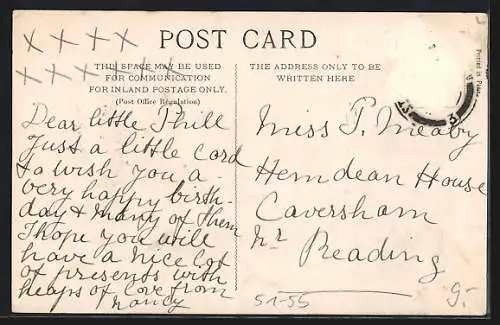 x x x x
POST CARD
x x x x x x x
THIS SPACE MAY BE USED
FOR COMMUNICATION
FOR INLAND POSTAGE ONLY.
(Post Office Regulation)
Dear little Phill
Just a little Card
to wish you a
very happy birth-
day & many of them
I hope you will
have a nice lot
of presents with
heaps of love from
Nancy
THE ADDRESS ONLY TO BE
WRITTEN HERE
Miss P. Meaby
Hemdean House
Caversham
Nr Reading
51-55
g.
Printed in